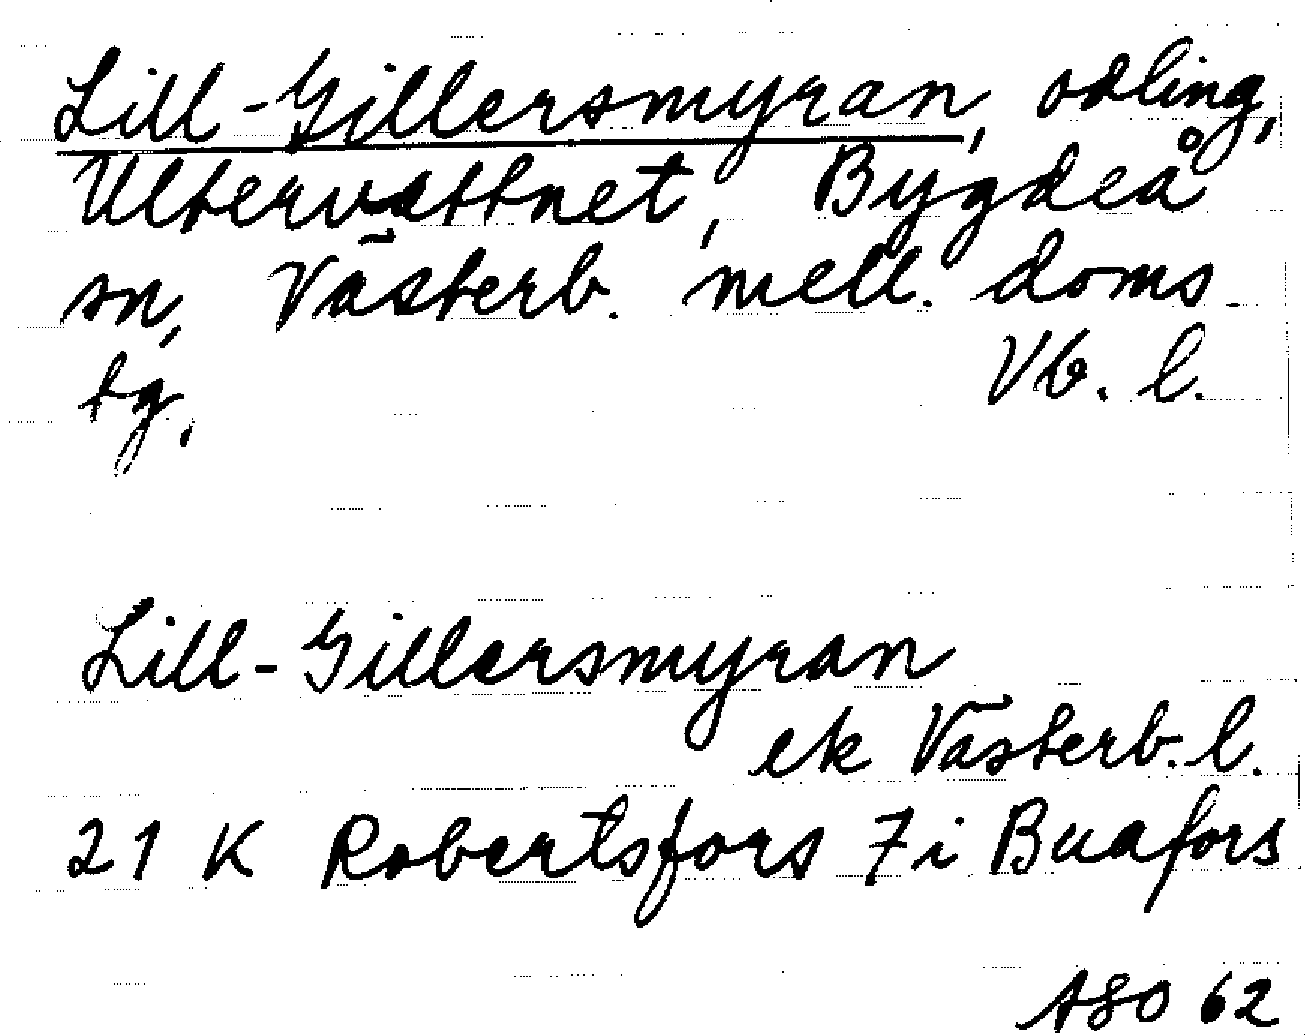 Lill-Gillersmyran, odling,
Ultervattnet, Bygdeå
sn, Västerb. mell. doms-
tg,
Vb. l.
Lill-Gillersmyran
ek Västerb. l.
21 K Robertsfors 7i Buafors
ASO 62